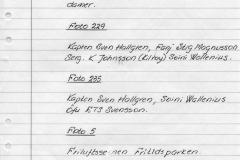 damer.
Foto 229
Kapten Sven Hallgren, Fanj Stig Magnusson
Serg. K Johnsson (Kilroy) Soini Wallenius.
Foto 285
Kapten Sven Hallgren, Soini Wallenius
Öfu RTS Svensson.
Foto 5
Friluftsscenen Fritidsparken.